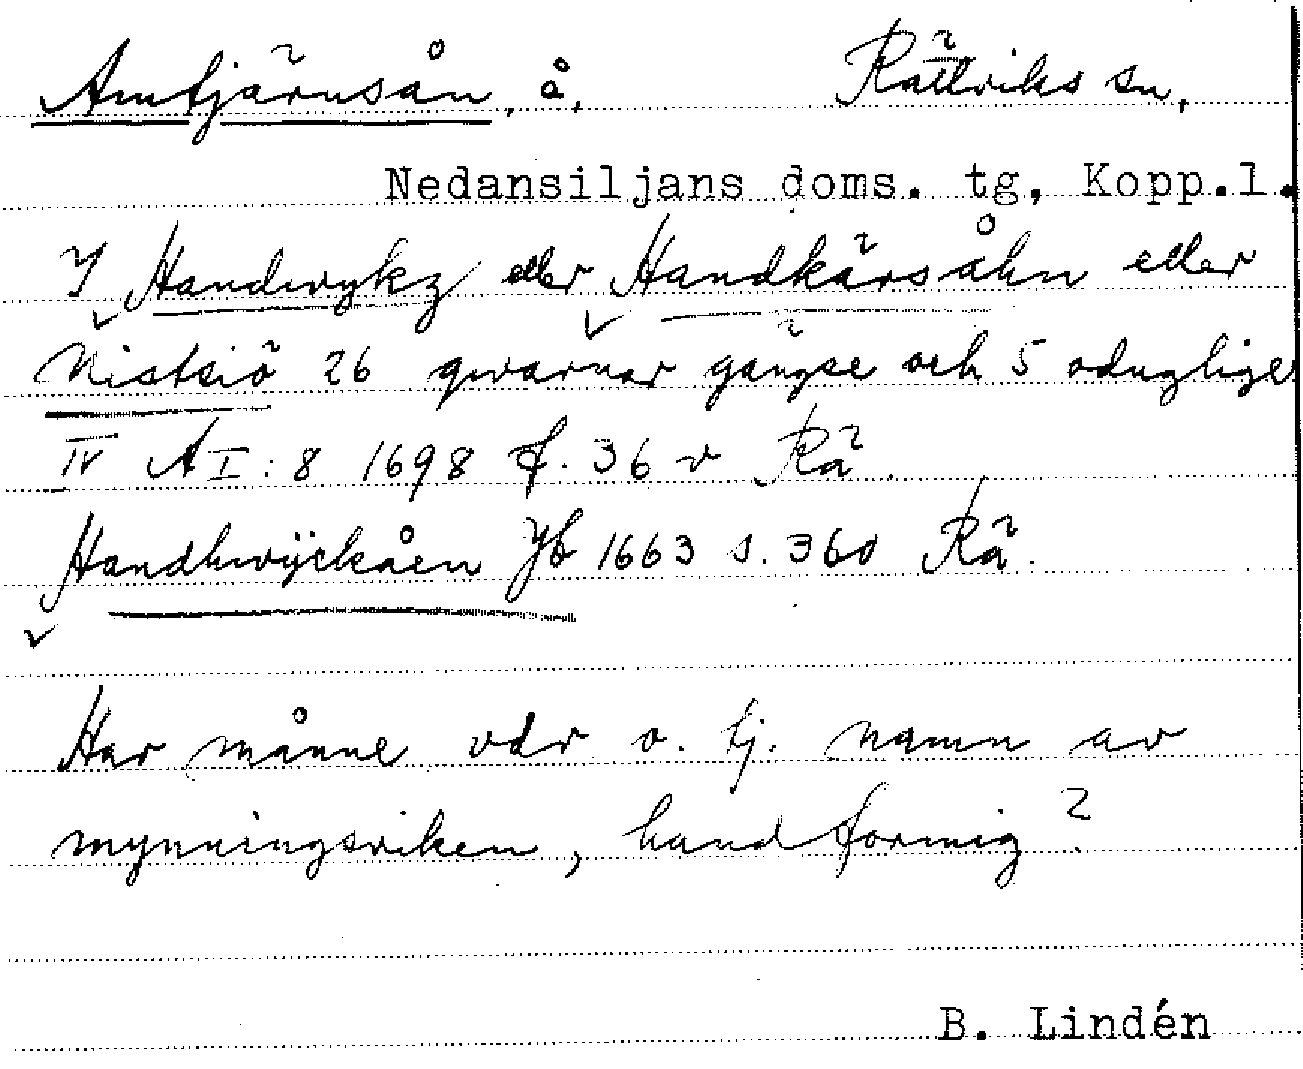 Amtjärnsån, å, Rättviks sn,
Nedansiljans doms. tg, Kopp.l.
I Handwykz eller Handkärsåhn eller
Nistsiö 26 qwarnar gängse och 5 oduglige
IV AI:8 1698 f. 36 v Rä.
Handhwÿckåen Jb 1663 s. 360 Rä.
Har månne vdr o. tj. namn av
mynningsviken, handformig?
B. Lindén